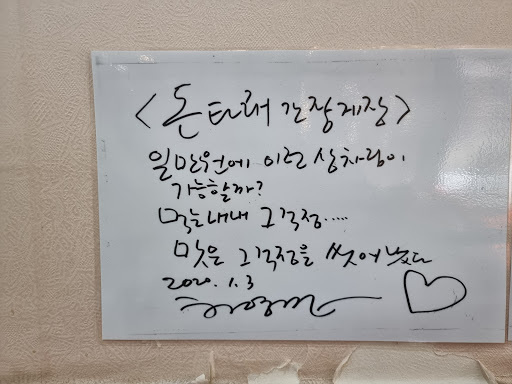 <돈타래 간장게장>
일만원에 이런 상차림이
가능할까?
먹는내내 그걱정.....
맛은 그걱정을 씻어냈다
2020. 1. 3